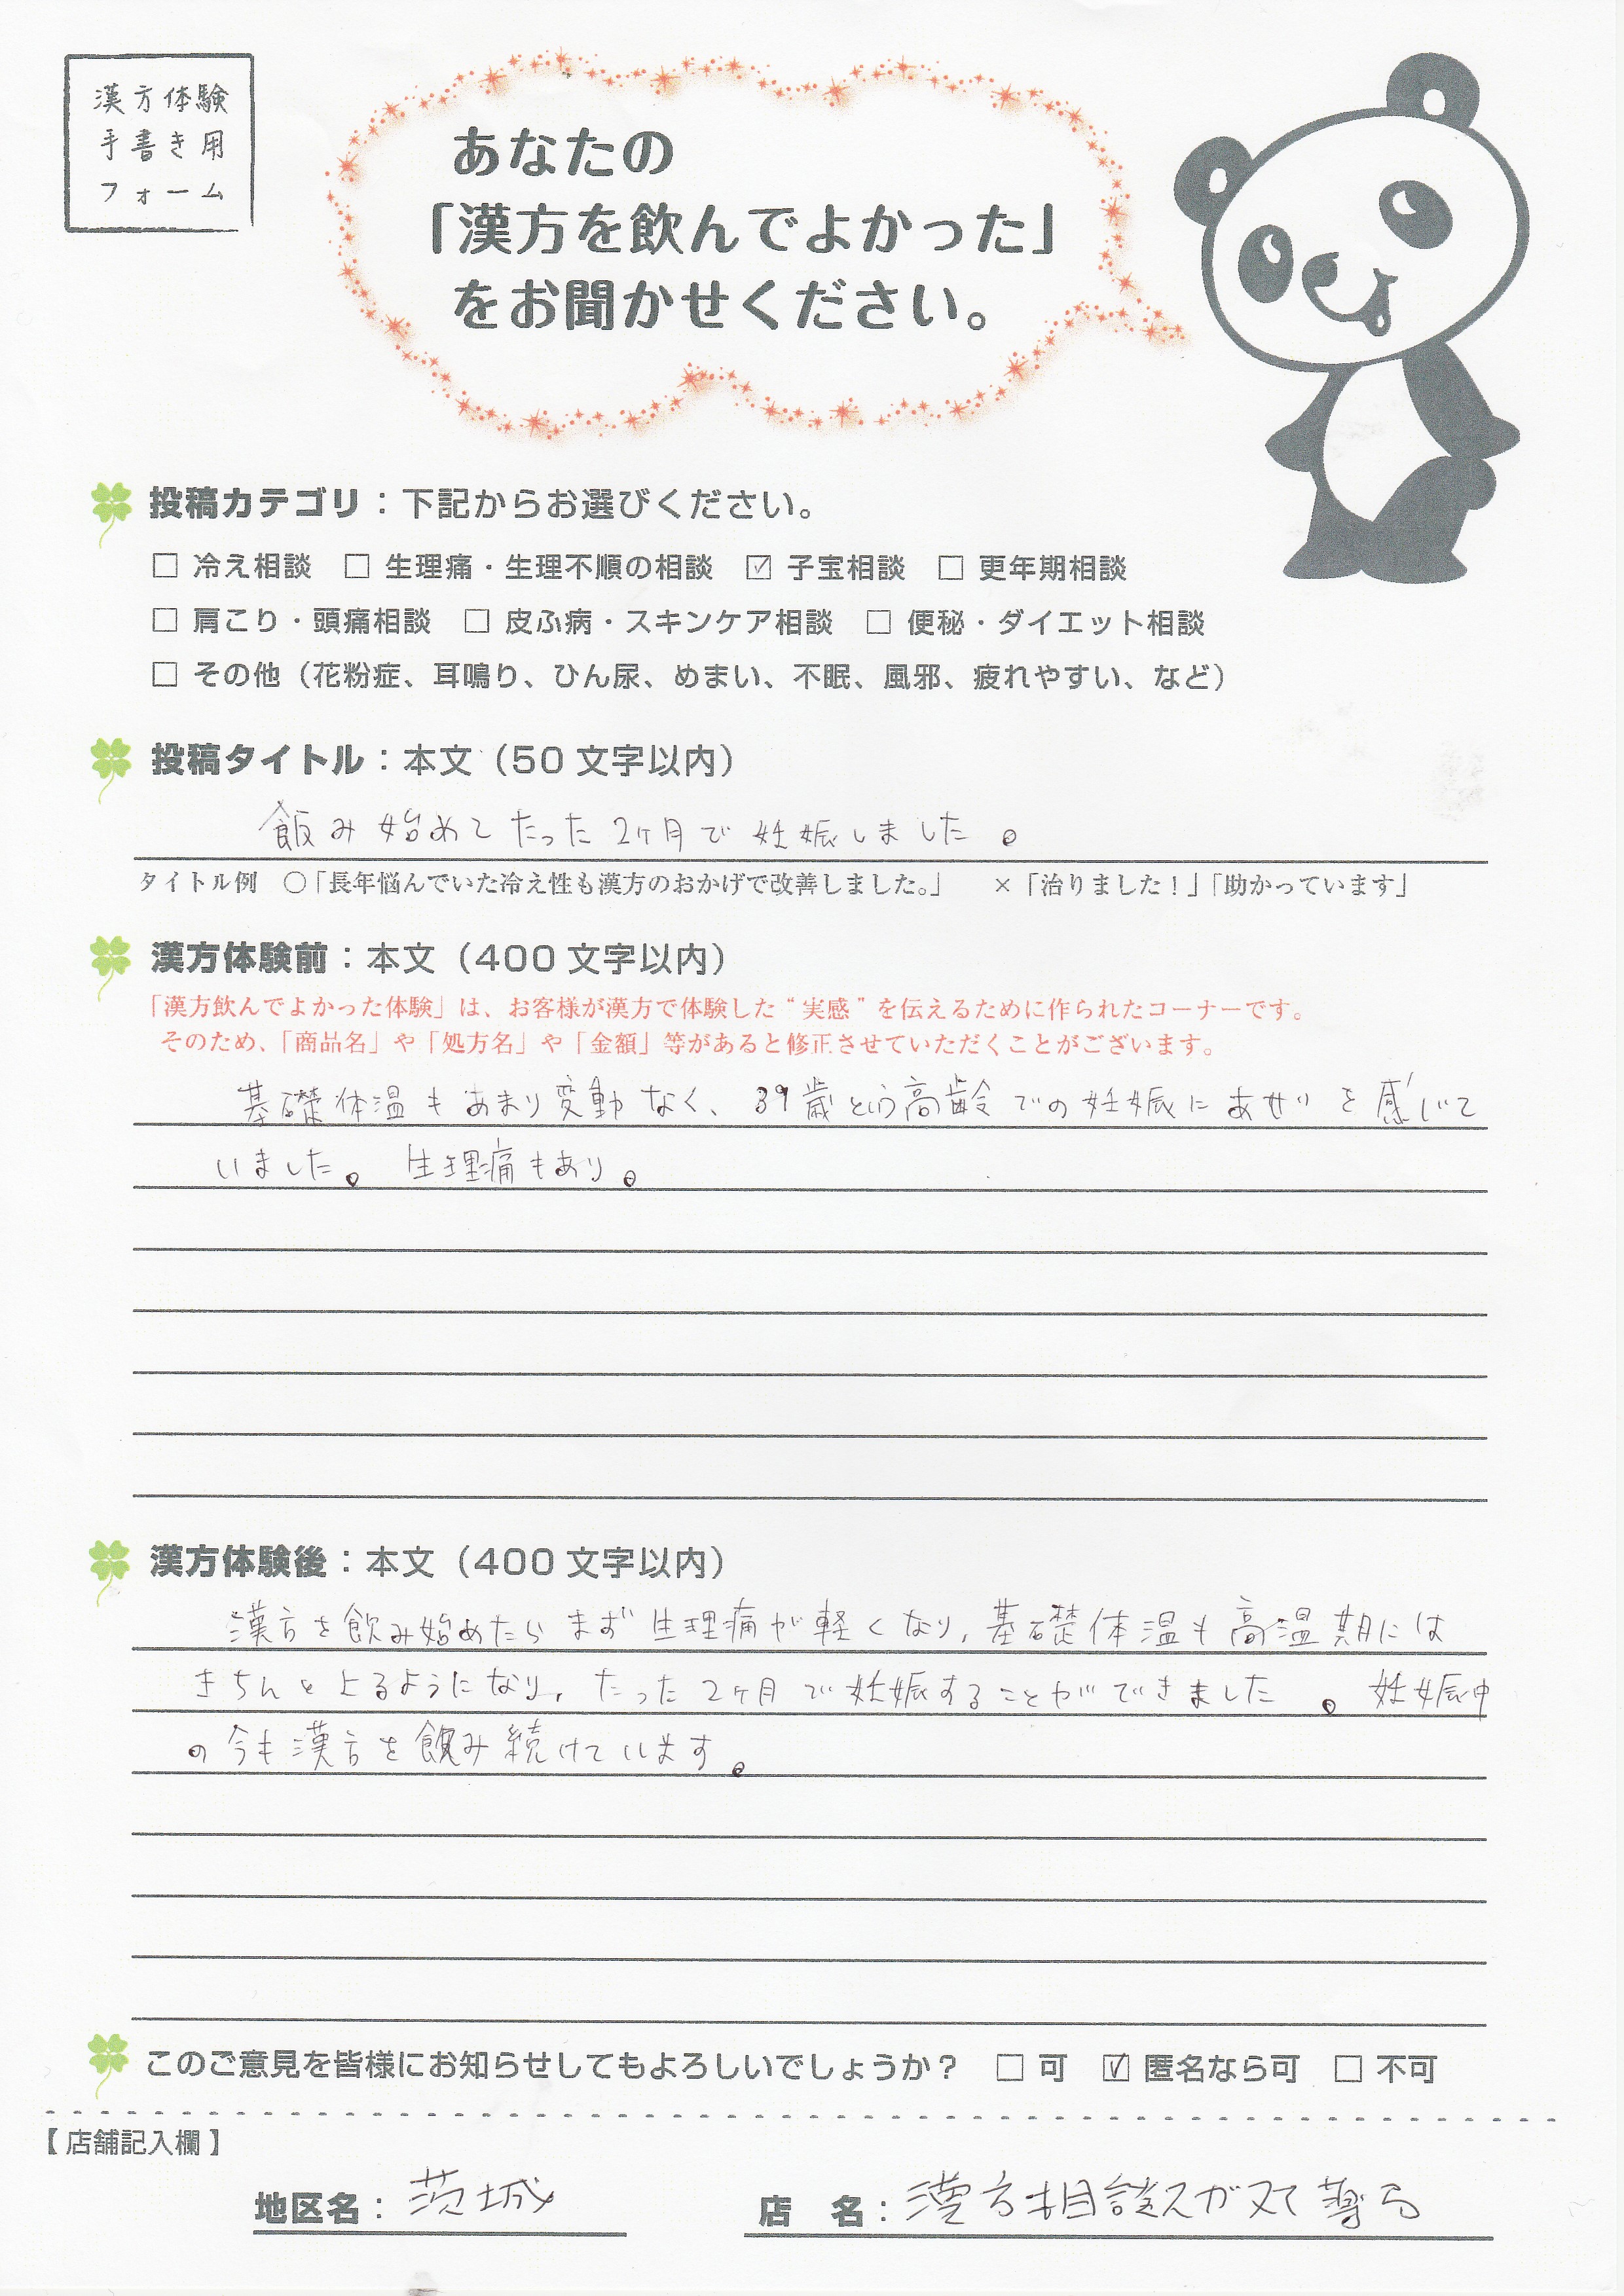 漢方体験
手書き用
フォーム
あなたの
「漢方を飲んでよかった」
をお聞かせください。
投稿カテゴリ：下記からお選びください。
□ 冷え相談 □ 生理痛・生理不順の相談 ☑ 子宝相談 □ 更年期相談
□ 肩こり・頭痛相談 □ 皮ふ病・スキンケア相談 □ 便秘・ダイエット相談
□ その他（花粉症、耳鳴り、ひん尿、めまい、不眠、風邪、疲れやすい、など）
投稿タイトル：本文（50 文字以内）
飲み始めてたった2ヶ月で妊娠しました。
タイトル例 ○「長年悩んでいた冷え性も漢方のおかげで改善しました。」 ×「治りました！」「助かっています」
漢方体験前：本文（400 文字以内）
「漢方飲んでよかった体験」は、お客様が漢方で体験した“実感”を伝えるために作られたコーナーです。
そのため、「商品名」や「処方名」や「金額」等があると修正させていただくことがございます。
基礎体温もあまり変動なく、39歳という高齢での妊娠にあせりを感じて
いました。生理痛もあり。
漢方体験後：本文（400 文字以内）
漢方を飲み始めたらまず生理痛が軽くなり、基礎体温も高温期には
きちんと上るようになり、たった2ヶ月で妊娠することができました。妊娠中
の今も漢方を飲み続けています。
このご意見を皆様にお知らせしてもよろしいでしょうか？ □ 可 ☑ 匿名なら可 □ 不可
【店舗記入欄】
地区名：茨城 店 名：漢方相談スガヌマ薬局